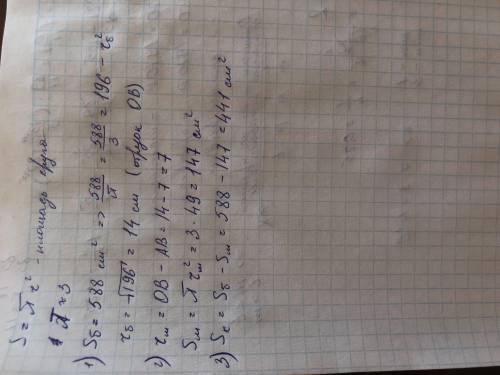 S = πr² - площадь круга
π ≈ 3
1) Sδ = 588 см² => 588/π = 588/3 = 196 - rδ²
rδ = √196 = 14 см (отрезок OB)
2) rм = OB - AB = 14 - 7 = 7
Sм = πrм² = 3 · 49 = 147 см²
3) Sк = Sδ - Sм = 588 - 147 = 441 см²